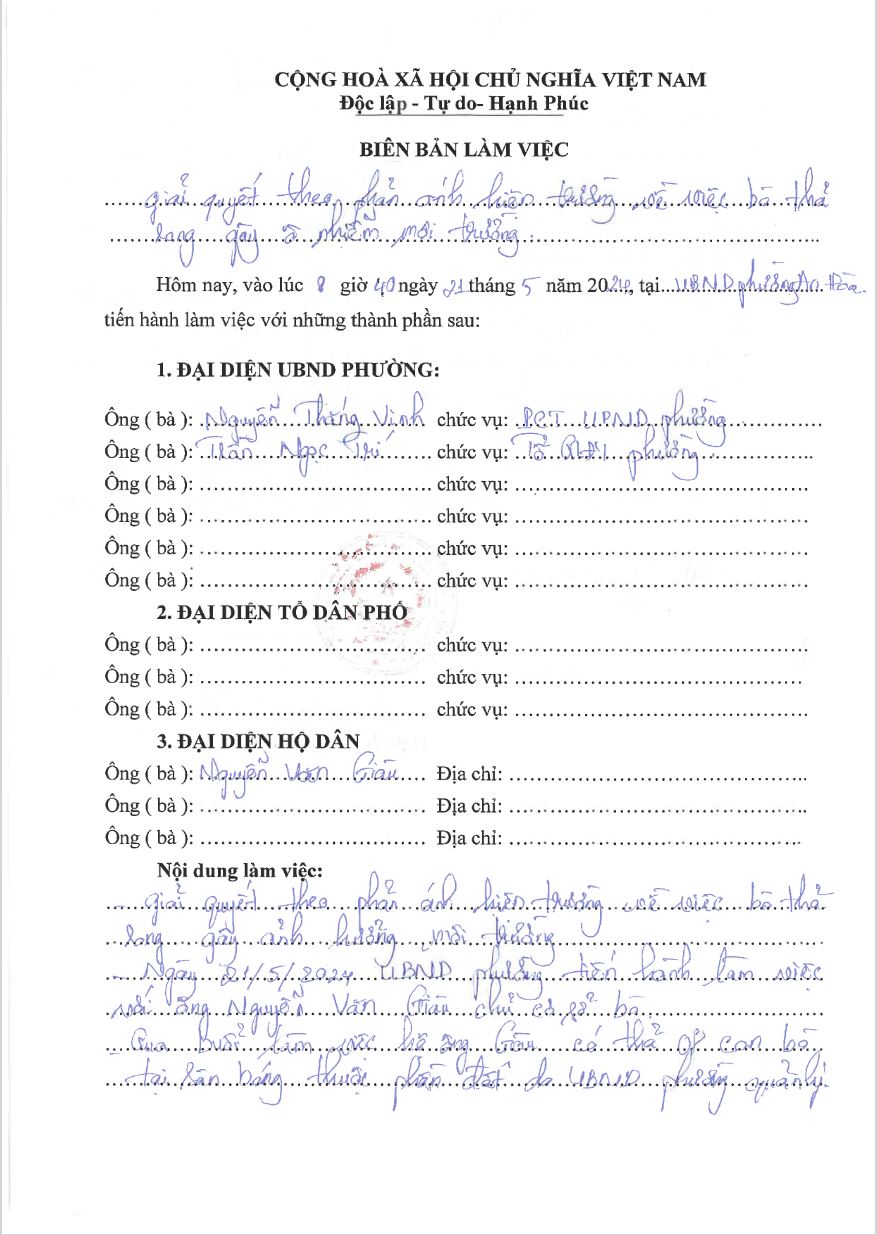 CỘNG HOÀ XÃ HỘI CHỦ NGHĨA VIỆT NAM
Độc lập - Tự do- Hạnh Phúc
BIÊN BẢN LÀM VIỆC
giải quyết theo phản ánh hiện trường về việc bò thả
rong gây ô nhiễm môi trường.
Hôm nay, vào lúc 8 giờ 40 ngày 21 tháng 5 năm 2024, tại UBND phường An Hòa
tiến hành làm việc với những thành phần sau:
1. ĐẠI DIỆN UBND PHƯỜNG:
Ông ( bà ): Nguyễn Thắng Vinh chức vụ: PCT UBND phường
Ông ( bà ): Trần Ngọc Trí chức vụ: Tổ phường
Ông ( bà ): chức vụ:
Ông ( bà ): chức vụ:
Ông ( bà ): chức vụ:
Ông ( bà ): chức vụ:
2. ĐẠI DIỆN TỔ DÂN PHỐ
Ông ( bà ): chức vụ:
Ông ( bà ): chức vụ:
Ông ( bà ): chức vụ:
3. ĐẠI DIỆN HỘ DÂN
Ông ( bà ): Nguyễn Văn Giàu Địa chỉ:
Ông ( bà ): Địa chỉ:
Ông ( bà ): Địa chỉ:
Nội dung làm việc:
- Giải quyết theo phản ánh hiện trường về việc bò thả
rong gây ảnh hưởng môi trường
- Ngày 21/5/2024 UBND phường tiến hành làm việc
với ông Nguyễn Văn Giàu chủ cơ sở bò
- Qua buổi làm việc hộ ông Giàu có thả 08 con bò
tại sân bóng thuộc phần đất do UBND phường quản lý.